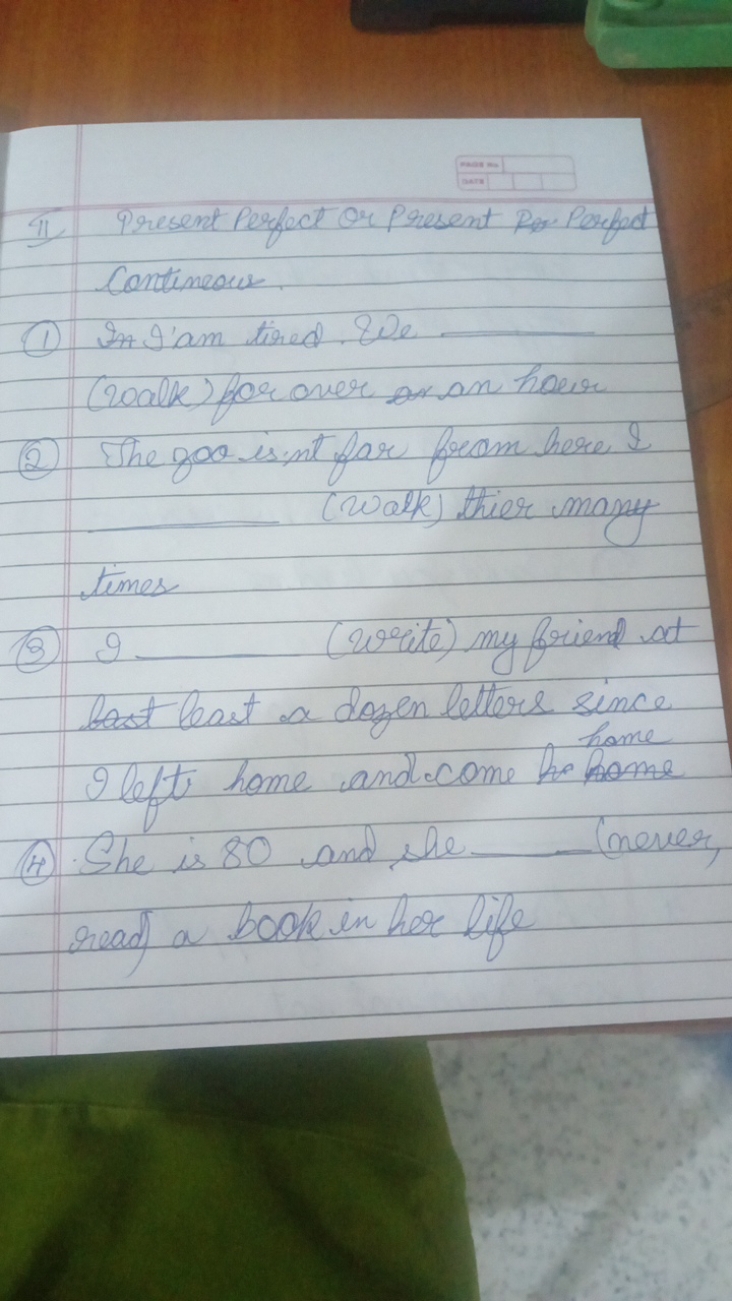 PAGE No
DATE
II Present Perfect Or Present Per Perfect
Contineous.
1 In I'am tired. We ________
(walk) for over or an hour
2 The zoo is.nt far from here I
________ (walk) thier many
times
3 I ________ (write) my friend at
last least a dozen letters since
home
I left home and come h home
4 She is 80 and she ________ (never,
read) a book in her life